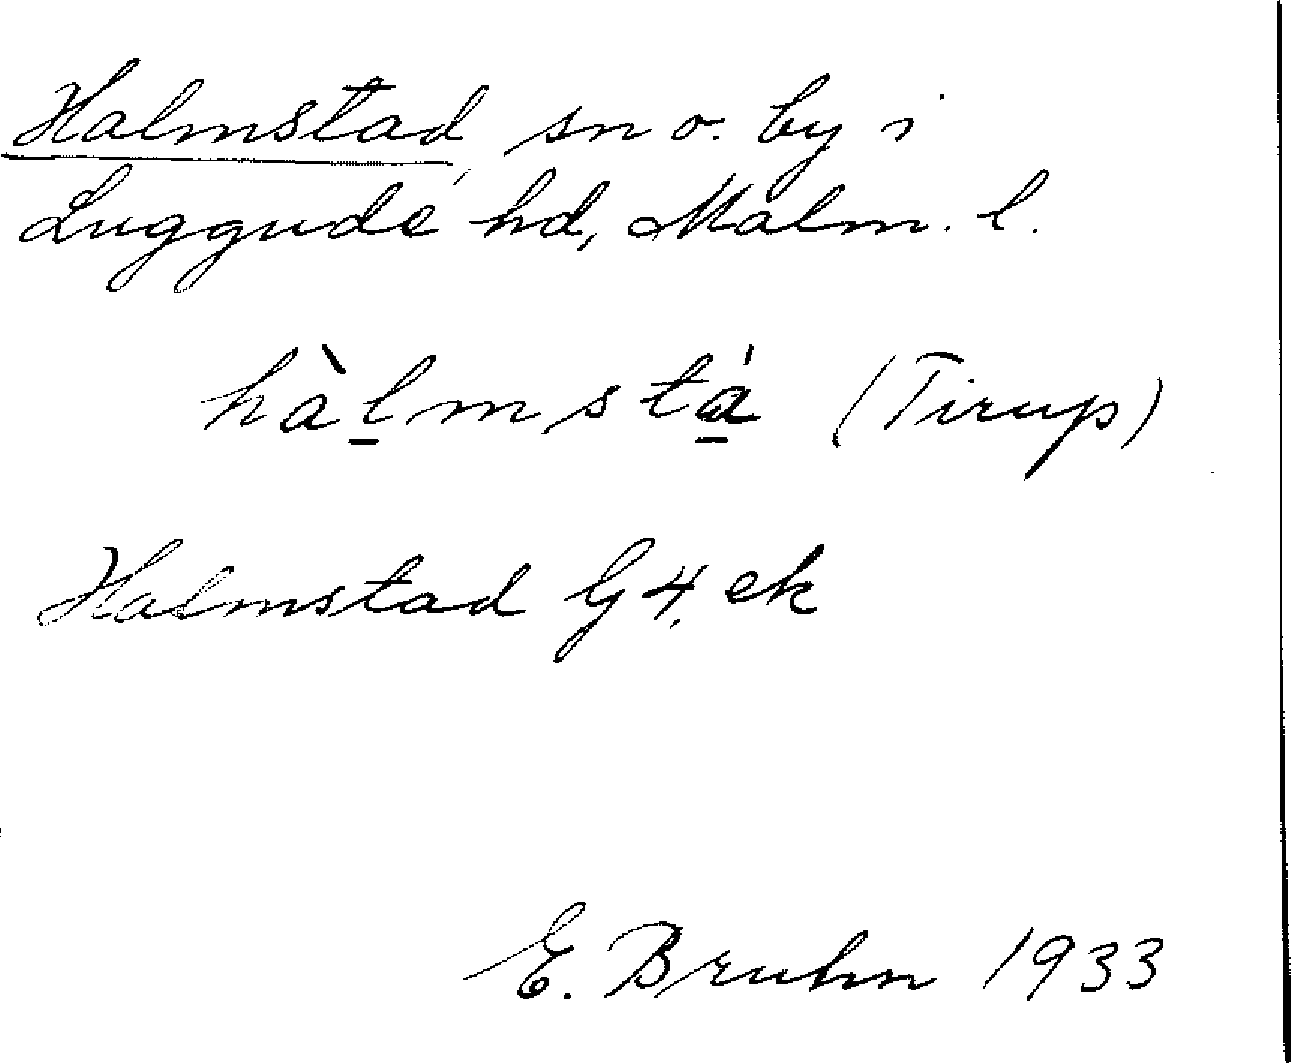 Halmstad, sn o. by i
Luggude hd, Malm. l.
hàl̠mstá̠ (Tirup)
Halmstad G4, ek
E. Bruhn 1933